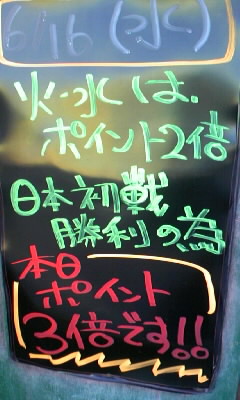 6/16(水)
火・水は
ポイント2倍
日本初戦
勝利の為
本日
ポイント
3倍です!!